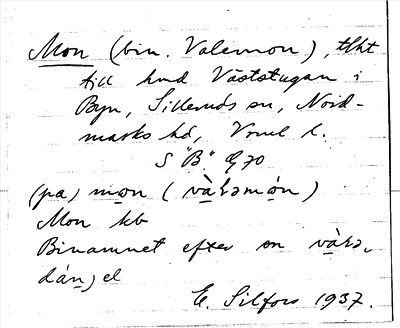 Mon (bin. Valemon), tlht
till hmd Västtstugan i
Byn, Sillerud sn, Nord-
marks hd, Vrml l.
S "B" G 70
(pa) mon (vàɫəmón)
Mon kb
Binamnet efter en
E. Silfors 1937.